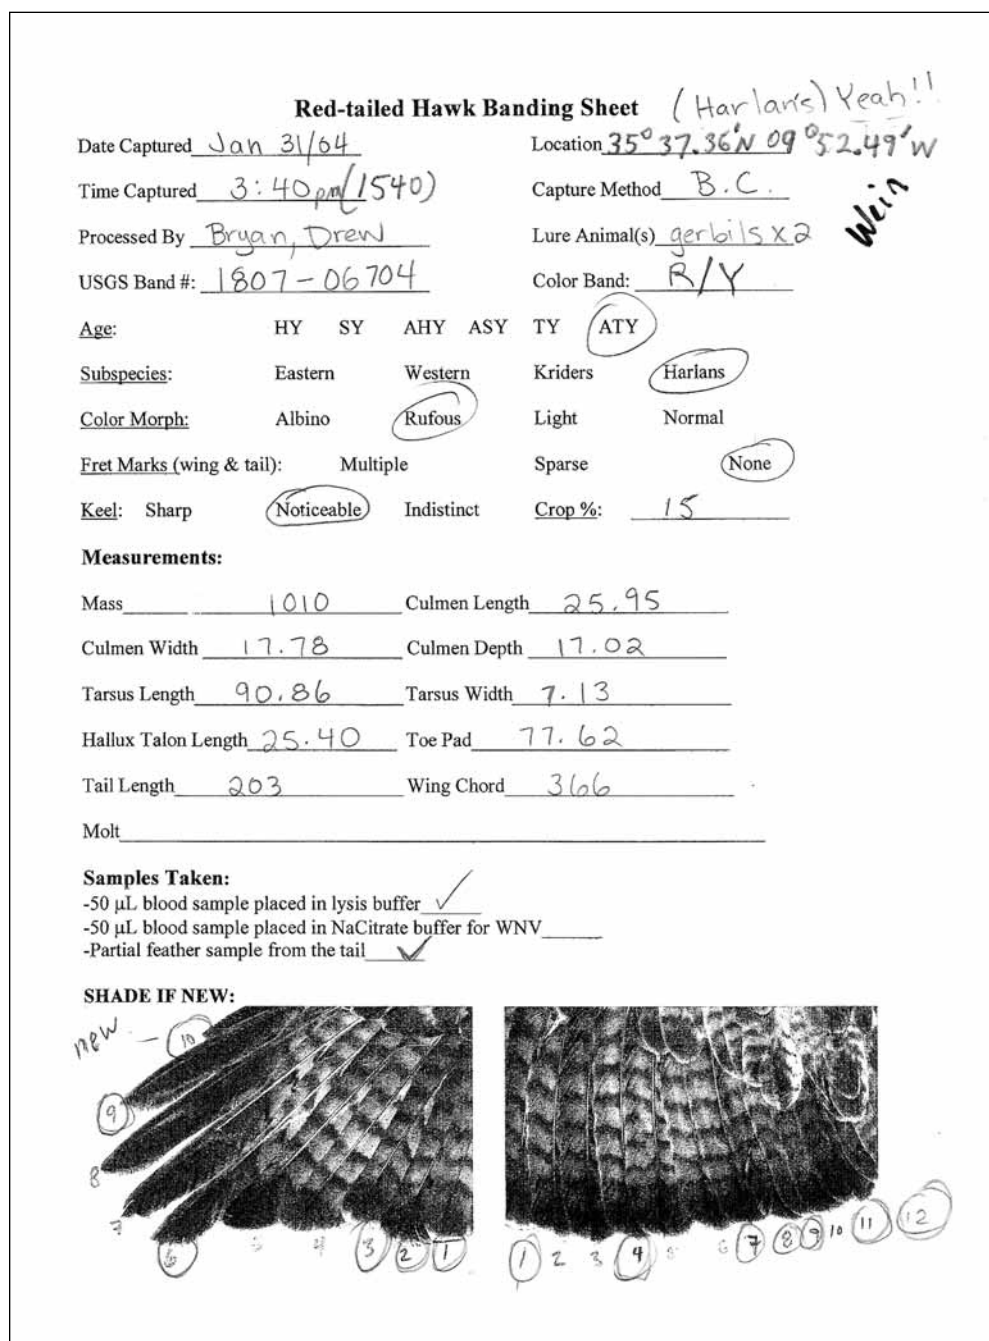 Red-tailed Hawk Banding Sheet (Harlan's) Yeah!!
Date Captured Jan 31/04 Location 35° 37.36'N 09°52.49'W
Time Captured 3:40pm (1540) Capture Method B.C.
Processed By Bryan, Drew Lure Animal(s) gerbils x2
USGS Band #: 1807-06704 Color Band: R/Y
Age: HY SY AHY ASY TY ATY
Subspecies: Eastern Western Kriders Harlans
Color Morph: Albino Rufous Light Normal
Fret Marks (wing & tail): Multiple Sparse None
Keel: Sharp Noticeable Indistinct Crop %: 15
Measurements:
Mass 1010 Culmen Length 25.95
Culmen Width 17.78 Culmen Depth 17.02
Tarsus Length 90.86 Tarsus Width 7.13
Hallux Talon Length 25.40 Toe Pad 77.62
Tail Length 203 Wing Chord 366
Molt
Samples Taken:
-50 µL blood sample placed in lysis buffer ✓
-50 µL blood sample placed in NaCitrate buffer for WNV
-Partial feather sample from the tail ✓
SHADE IF NEW:
new - 10
9
8
7
6 5 4 3 2 1 1 2 3 4 5 6 7 8 9 10 11 12